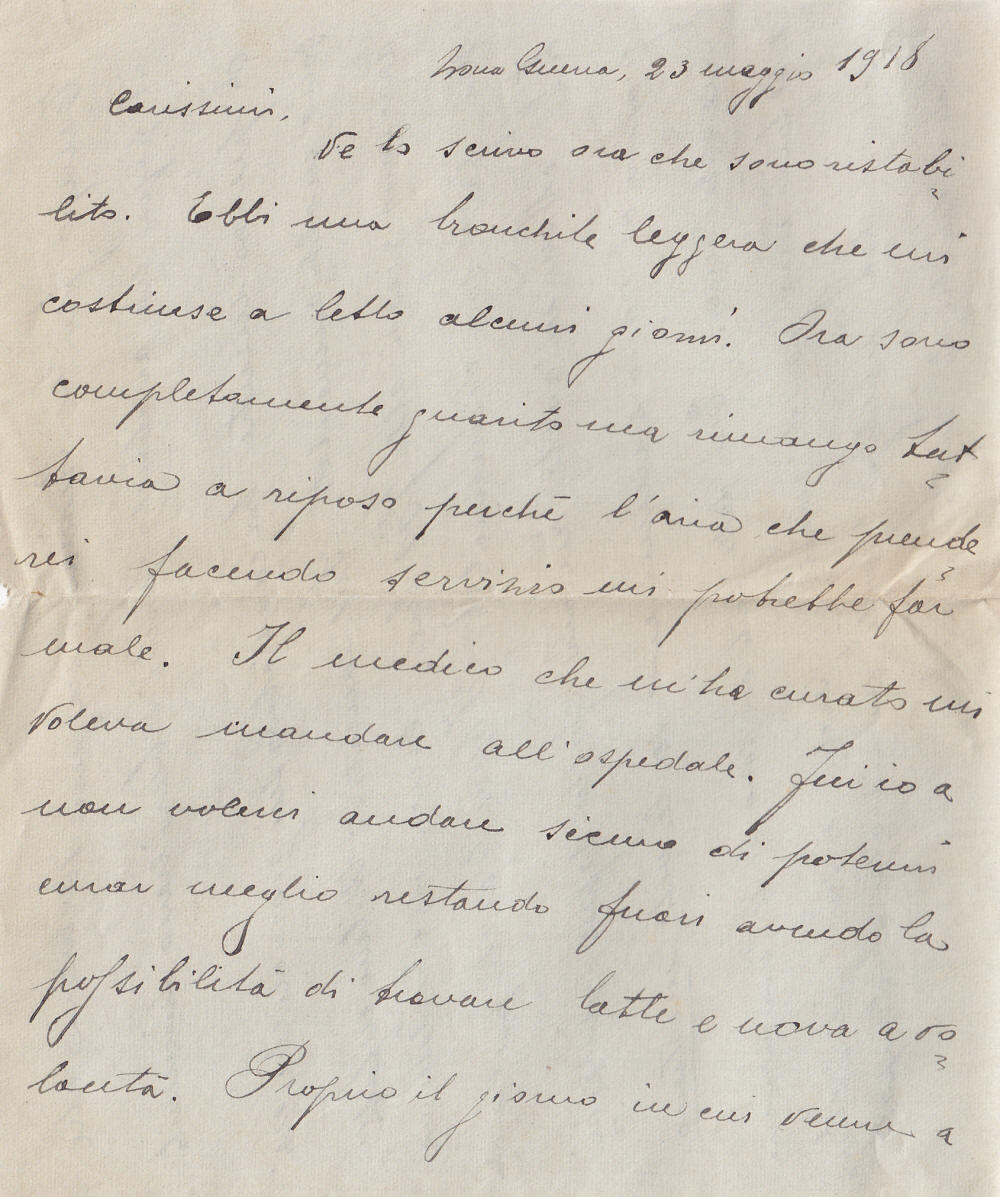 Zona Guerra, 23 maggio 1918
Carissimi,
Ve lo scrivo ora che sono ristabi
lito. Ebbi una bronchite leggera che mi
costrinse a letto alcuni giorni. Ora sono
completamente guarito ma rimango tut
tavia a riposo perchè l'aria che prende
rei facendo servizio mi potrebbe far
male. Il medico che m'ha curato mi
voleva mandare all'ospedale. Fui io a
non volerci andare sicuro di potermi
curar meglio restando fuori avendo la
possibilità di trovare latte e uova a vo
lontà. Proprio il giorno in cui venne a